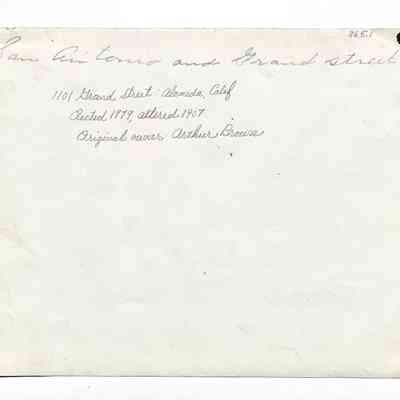 865.1
San Antonio and Grand street
1101 Grand Street Alameda, Calif
Erected 1879, altered 1907
Original owner Arthur Brown